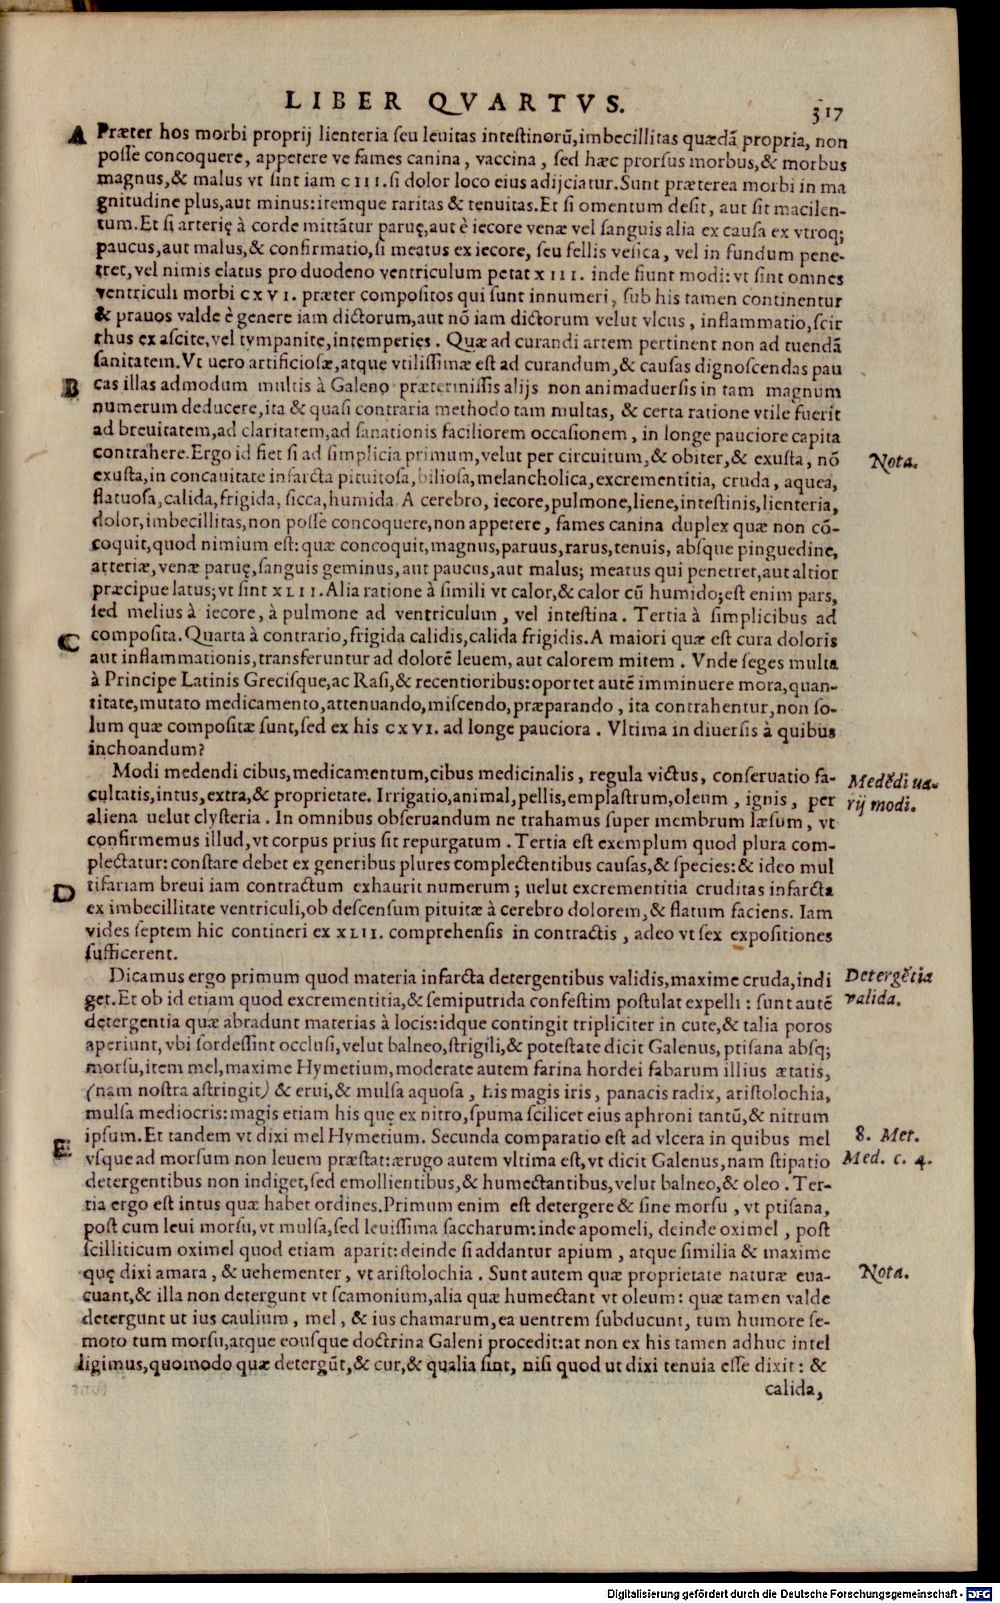 LIBER QVARTVS. 317
A Præter hos morbi proprij lienteria seu leuitas intestinorū, imbecillitas quædā propria, non
posse concoquere, appetere ve fames canina, vaccina, sed hæc prorsus morbus, & morbus
magnus, & malus vt sint iam CIII. si dolor loco eius adijciatur. Sunt præterea morbi in ma
gnitudine plus, aut minus: itemque raritas & tenuitas. Et si omentum desit, aut sit macilen-
tum. Et si arterię à corde mittātur paruę, aut è iecore venæ vel sanguis alia ex causa ex vtroq;
paucus, aut malus, & confirmatio, si meatus ex iecore, seu fellis vesica, vel in fundum pene-
tret, vel nimis elatus pro duodeno ventriculum petat XIII. inde fiunt modi: vt sint omnes
ventriculi morbi CXVI. præter compositos qui sunt innumeri, sub his tamen continentur
& prauos valde è genere iam dictorum, aut nō iam dictorum velut vlcus, inflammatio, scir
rhus ex ascite, vel tympanite, intemperies. Quæ ad curandi artem pertinent non ad tuendā
sanitatem. Vt uero artificiosæ, atque vtilissimæ est ad curandum, & causas dignoscendas pau
B cas illas admodum multis à Galeno prætermissis alijs non animaduersis in tam magnum
numerum deducere, ita & quasi contraria methodo tam multas, & certa ratione vtile fuerit
ad breuitatem, ad claritatem, ad sanationis faciliorem occasionem, in longe pauciore capita
contrahere. Ergo id fiet si ad simplicia primum, velut per circuitum, & obiter, & exusta, nō
Nota.
exusta, in concauitate infarcta pituitosa, biliosa, melancholica, excrementitia, cruda, aquea,
flatuosa, calida, frigida, sicca, humida. A cerebro, iecore, pulmone, liene, intestinis, lienteria,
dolor, imbecillitas, non posse concoquere, non appetere, fames canina duplex quæ non cō-
coquit, quod nimium est: quæ concoquit, magnus, paruus, rarus, tenuis, absque pinguedine,
arteriæ, venæ paruę, sanguis geminus, aut paucus, aut malus; meatus qui penetret, aut altior
præcipue latus; vt sint XLII. Alia ratione à simili vt calor, & calor cū humido; est enim pars,
sed melius à iecore, à pulmone ad ventriculum, vel intestina. Tertia à simplicibus ad
C composita. Quarta à contrario, frigida calidis, calida frigidis. A maiori quæ est cura doloris
aut inflammationis, transferuntur ad dolorē leuem, aut calorem mitem. Vnde seges multa
à Principe Latinis Grecisque, ac Rasi, & recentioribus: oportet autē imminuere mora, quan-
titate, mutato medicamento, attenuando, miscendo, præparando, ita contrahentur, non so-
lum quæ compositæ sunt, sed ex his CXVI. ad longe pauciora. Vltima in diuersis à quibus
inchoandum?
Modi medendi cibus, medicamentum, cibus medicinalis, regula victus, conseruatio fa-
Medēdi ua-
cultatis, intus, extra, & proprietate. Irrigatio, animal, pellis, emplastrum, oleum, ignis, per
rij modi.
aliena uelut clysteria. In omnibus obseruandum ne trahamus super membrum læsum, vt
confirmemus illud, vt corpus prius sit repurgatum. Tertia est exemplum quod plura com-
plectatur: constare debet ex generibus plures complectentibus causas, & species: & ideo mul
D tifariam breui iam contractum exhaurit numerum; uelut excrementitia cruditas infarcta
ex imbecillitate ventriculi, ob descensum pituitæ à cerebro dolorem, & flatum faciens. Iam
vides septem hic contineri ex XLII. comprehensis in contractis, adeo vt sex expositiones
sufficerent.
Dicamus ergo primum quod materia infarcta detergentibus validis, maxime cruda, indi
Detergētia
get. Et ob id etiam quod excrementitia, & semiputrida confestim postulat expelli: sunt autē
valida.
detergentia quæ abradunt materias à locis: idque contingit tripliciter in cute, & talia poros
aperiunt, vbi sordessint occlusi, velut balneo, strigili, & potestate dicit Galenus, ptisana absq;
morsu, item mel, maxime Hymetium, moderate autem farina hordei fabarum illius ætatis,
(nam nostra astringit) & erui, & mulsa aquosa, his magis iris, panacis radix, aristolochia,
mulsa mediocris: magis etiam his quę ex nitro, spuma scilicet eius aphroni tantū, & nitrum
ipsum. Et tandem vt dixi mel Hymetium. Secunda comparatio est ad vlcera in quibus mel
8. Met.
E vsque ad morsum non leuem præstat: ærugo autem vltima est, vt dicit Galenus, nam stipatio
Med. c. 4.
detergentibus non indiget, sed emollientibus, & humectantibus, velut balneo, & oleo. Ter-
tia ergo est intus quæ habet ordines. Primum enim est detergere & sine morsu, vt ptisana,
post cum leui morsu, vt mulsa, sed leuissima saccharum: inde apomeli, deinde oximel, post
scilliticum oximel quod etiam aparit: deinde si addantur apium, atque similia & maxime
quę dixi amara, & uehementer, vt aristolochia. Sunt autem quæ proprietate naturæ eua-
Nota.
cuant, & illa non detergunt vt scamonium, alia quæ humectant vt oleum: quæ tamen valde
detergunt ut ius caulium, mel, & ius chamarum, ea uentrem subducunt, tum humore se-
moto tum morsu, atque eousque doctrina Galeni procedit: at non ex his tamen adhuc intel
ligimus, quomodo quæ detergūt, & cur, & qualia sint, nisi quod ut dixi tenuia esse dixit: &
calida,
Digitalisierung gefördert durch die Deutsche Forschungsgemeinschaft - DFG